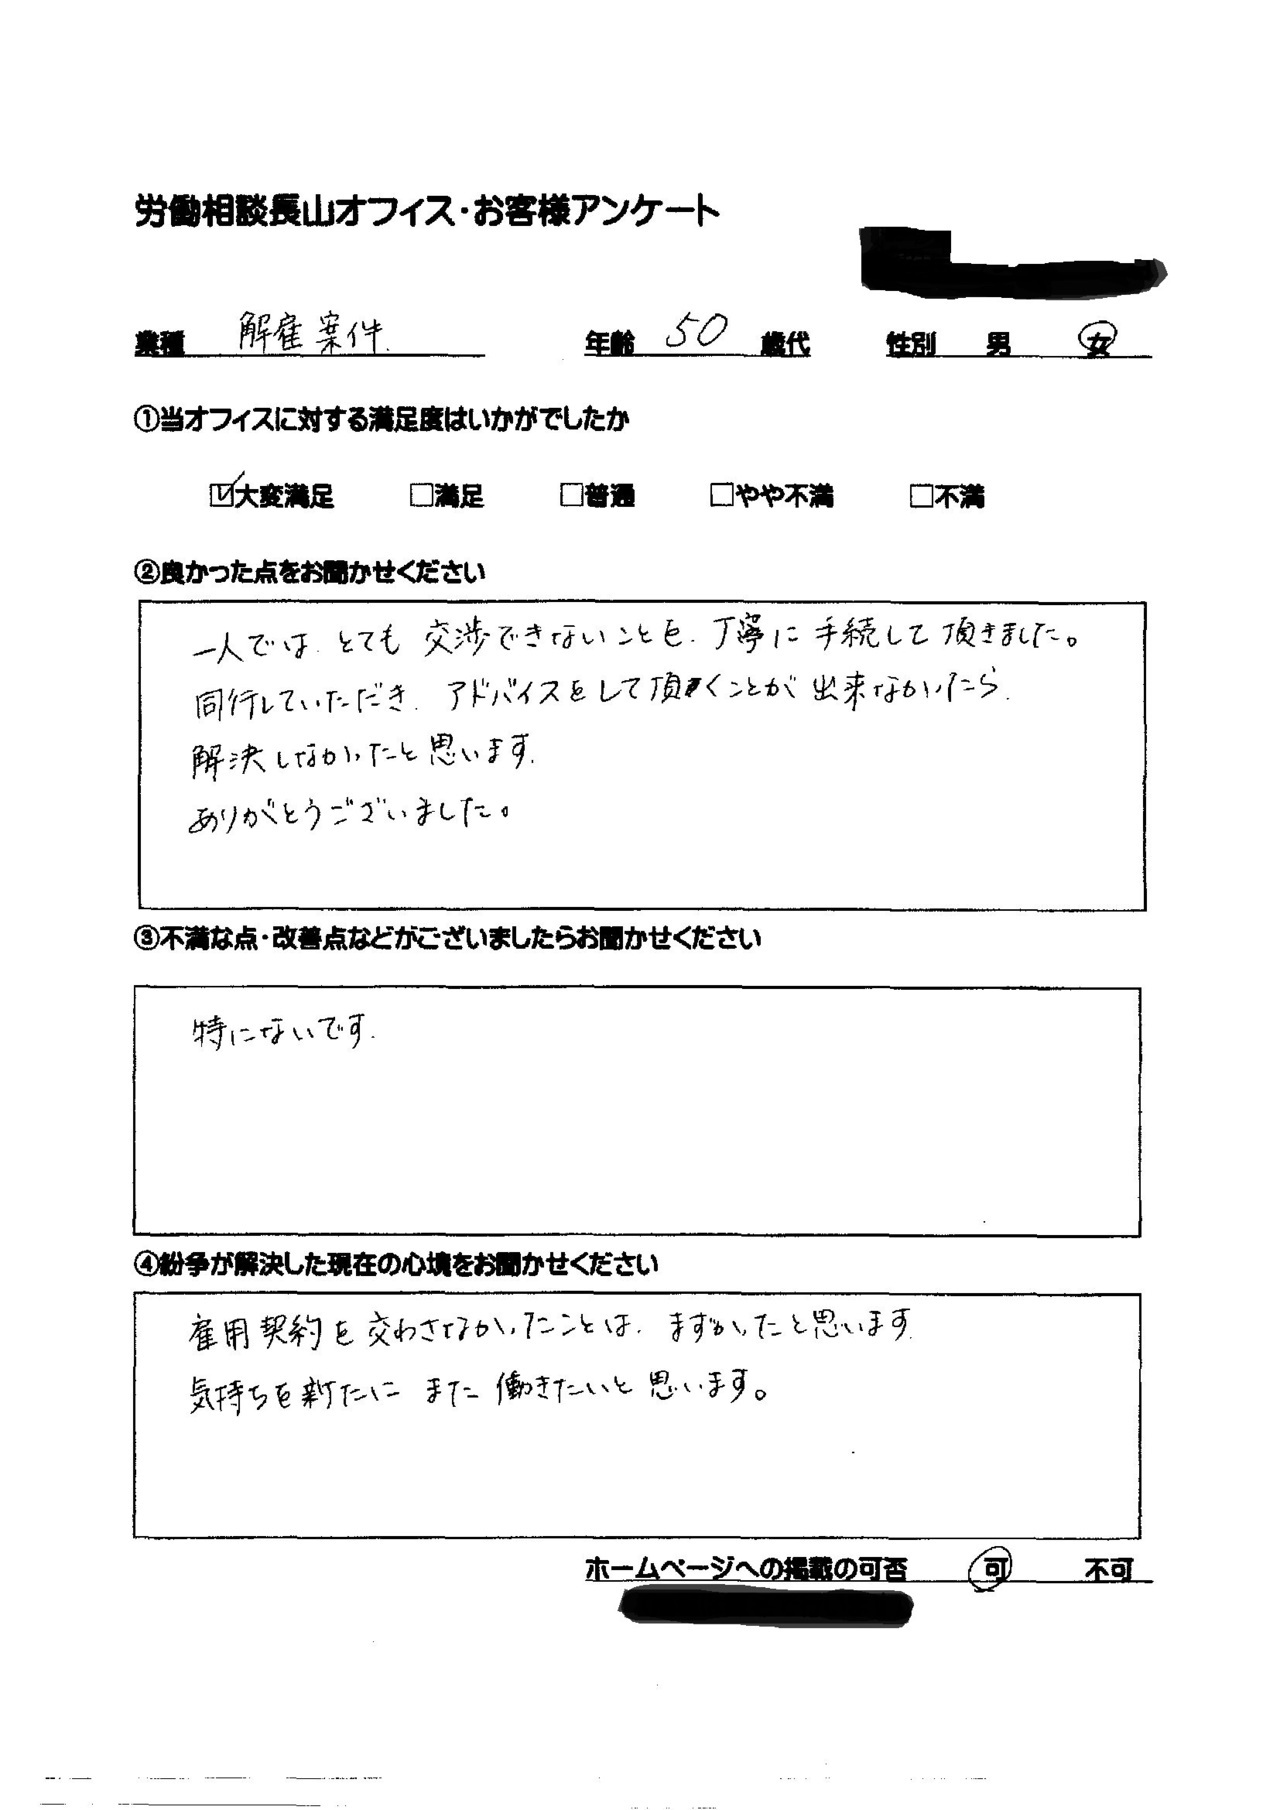 労働相談長山オフィス・お客様アンケート
業種 解雇案件. 年齢 50 歳代 性別 男 女
①当オフィスに対する満足度はいかがでしたか
☑大変満足 □満足 □普通 □やや不満 □不満
②良かった点をお聞かせください
一人では、とても 交渉できないことを、丁寧に 手続して頂きました。
同行していただき、アドバイスをして頂くことが 出来なかったら、
解決しなかったと思います.
ありがとうございました。
③不満な点・改善点などがございましたらお聞かせください
特にないです.
④紛争が解決した現在の心境をお聞かせください
雇用契約を交わさなかったことは、まずかったと思います.
気持ちを新たに また 働きたいと思います。
ホームページへの掲載の可否 可 不可